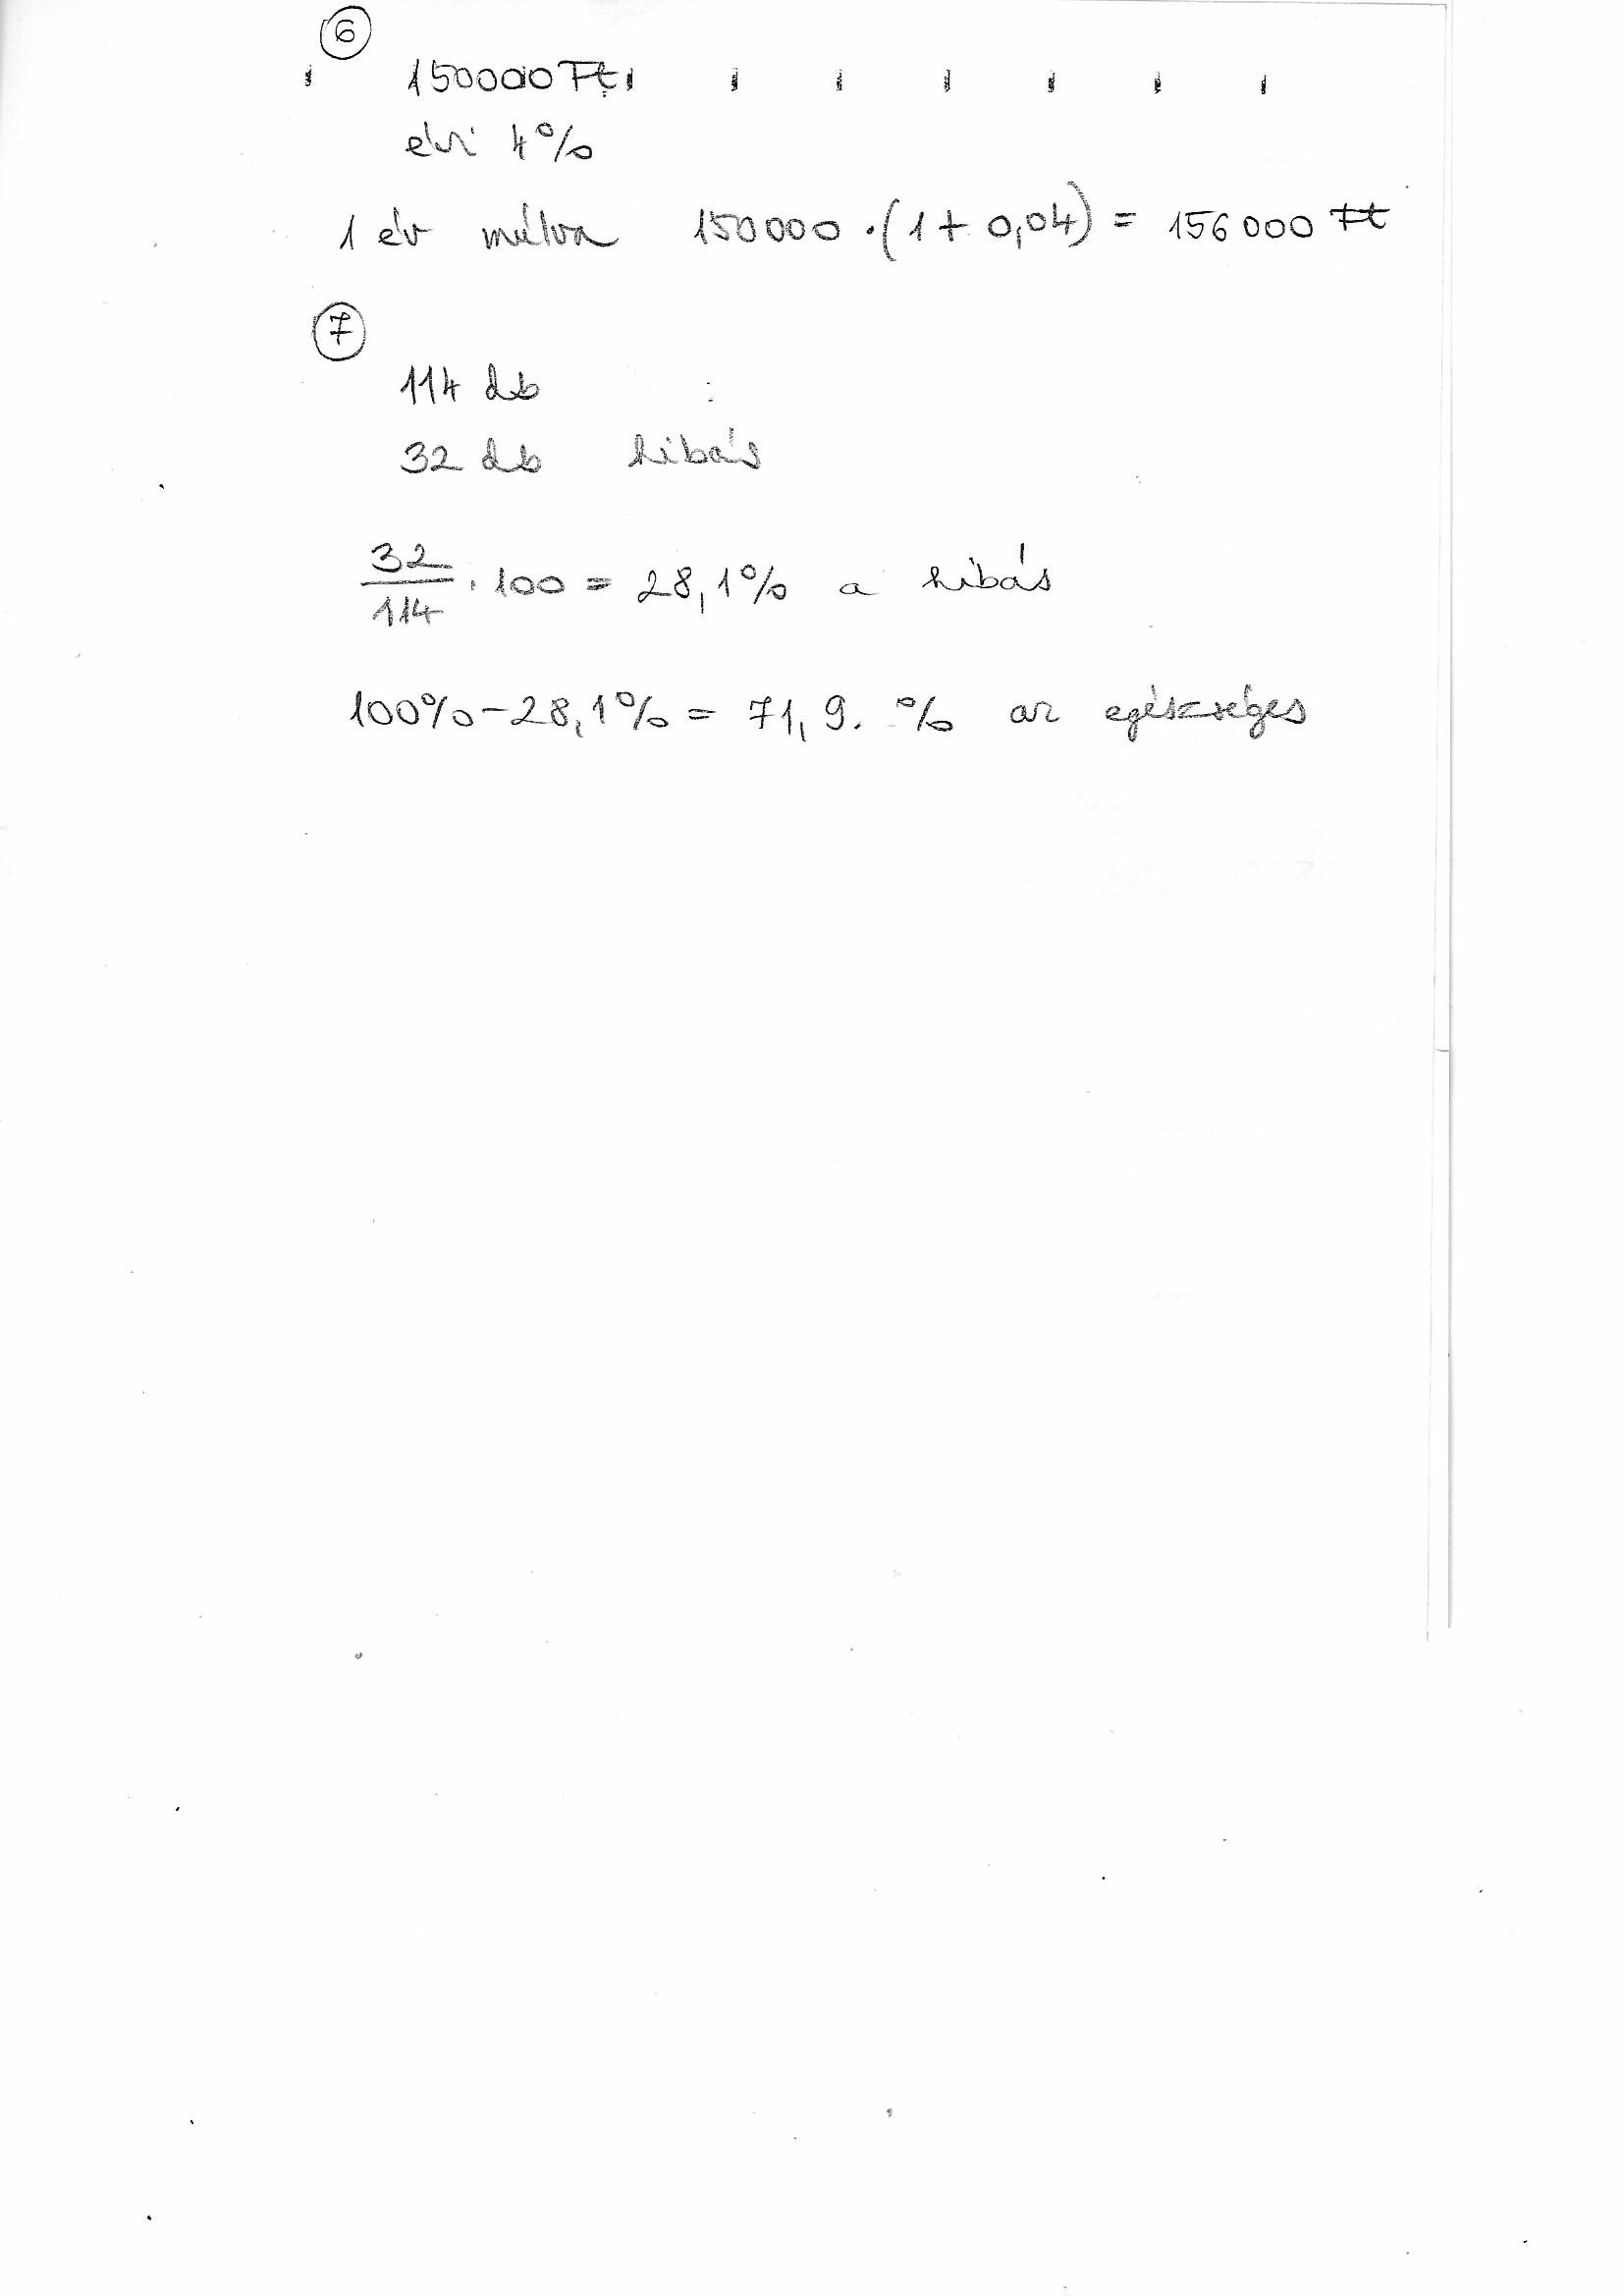 6
150000 Ft
évi 4%
1 év múlva 150000 · (1 + 0,04) = 156000 Ft
7
114 db
32 db hibás
32/114 · 100 = 28,1% a hibás
100% - 28,1% = 71,9. % az egészséges